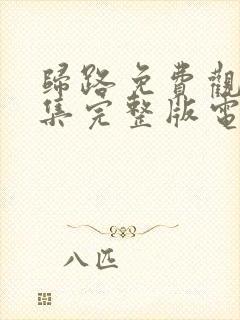 歸路免費觀
集完整版電
八匹